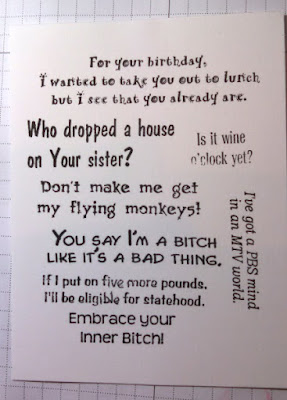 For your birthday,
I wanted to take you out to lunch
but I see that you already are.
Who dropped a house
on Your sister?
Is it wine
o'clock yet?
Don't make me get
my flying monkeys!
I've got a PBS mind
in an MTV world.
You say I'm a bitch
like it's a bad thing.
If I put on five more pounds,
I'll be eligible for statehood.
Embrace your
Inner Bitch!